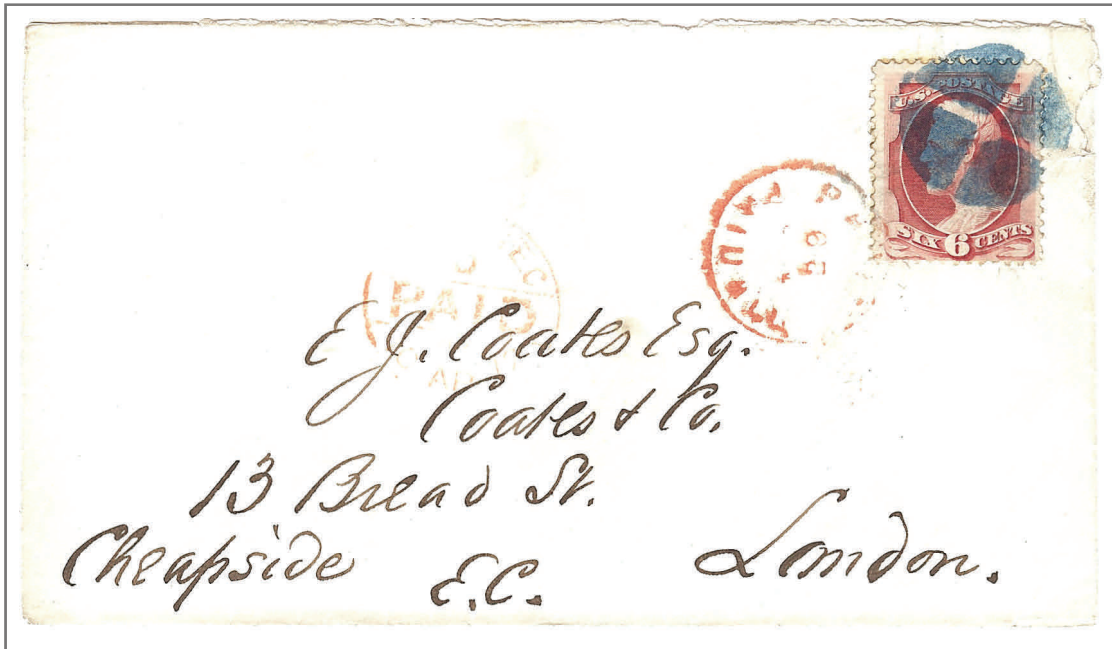 U.S. POSTAGE
SIX 6 CENTS
PAID
E J. Coates Esq.
Coates & Co.
13 Bread St.
Cheapside
E.C.
London.